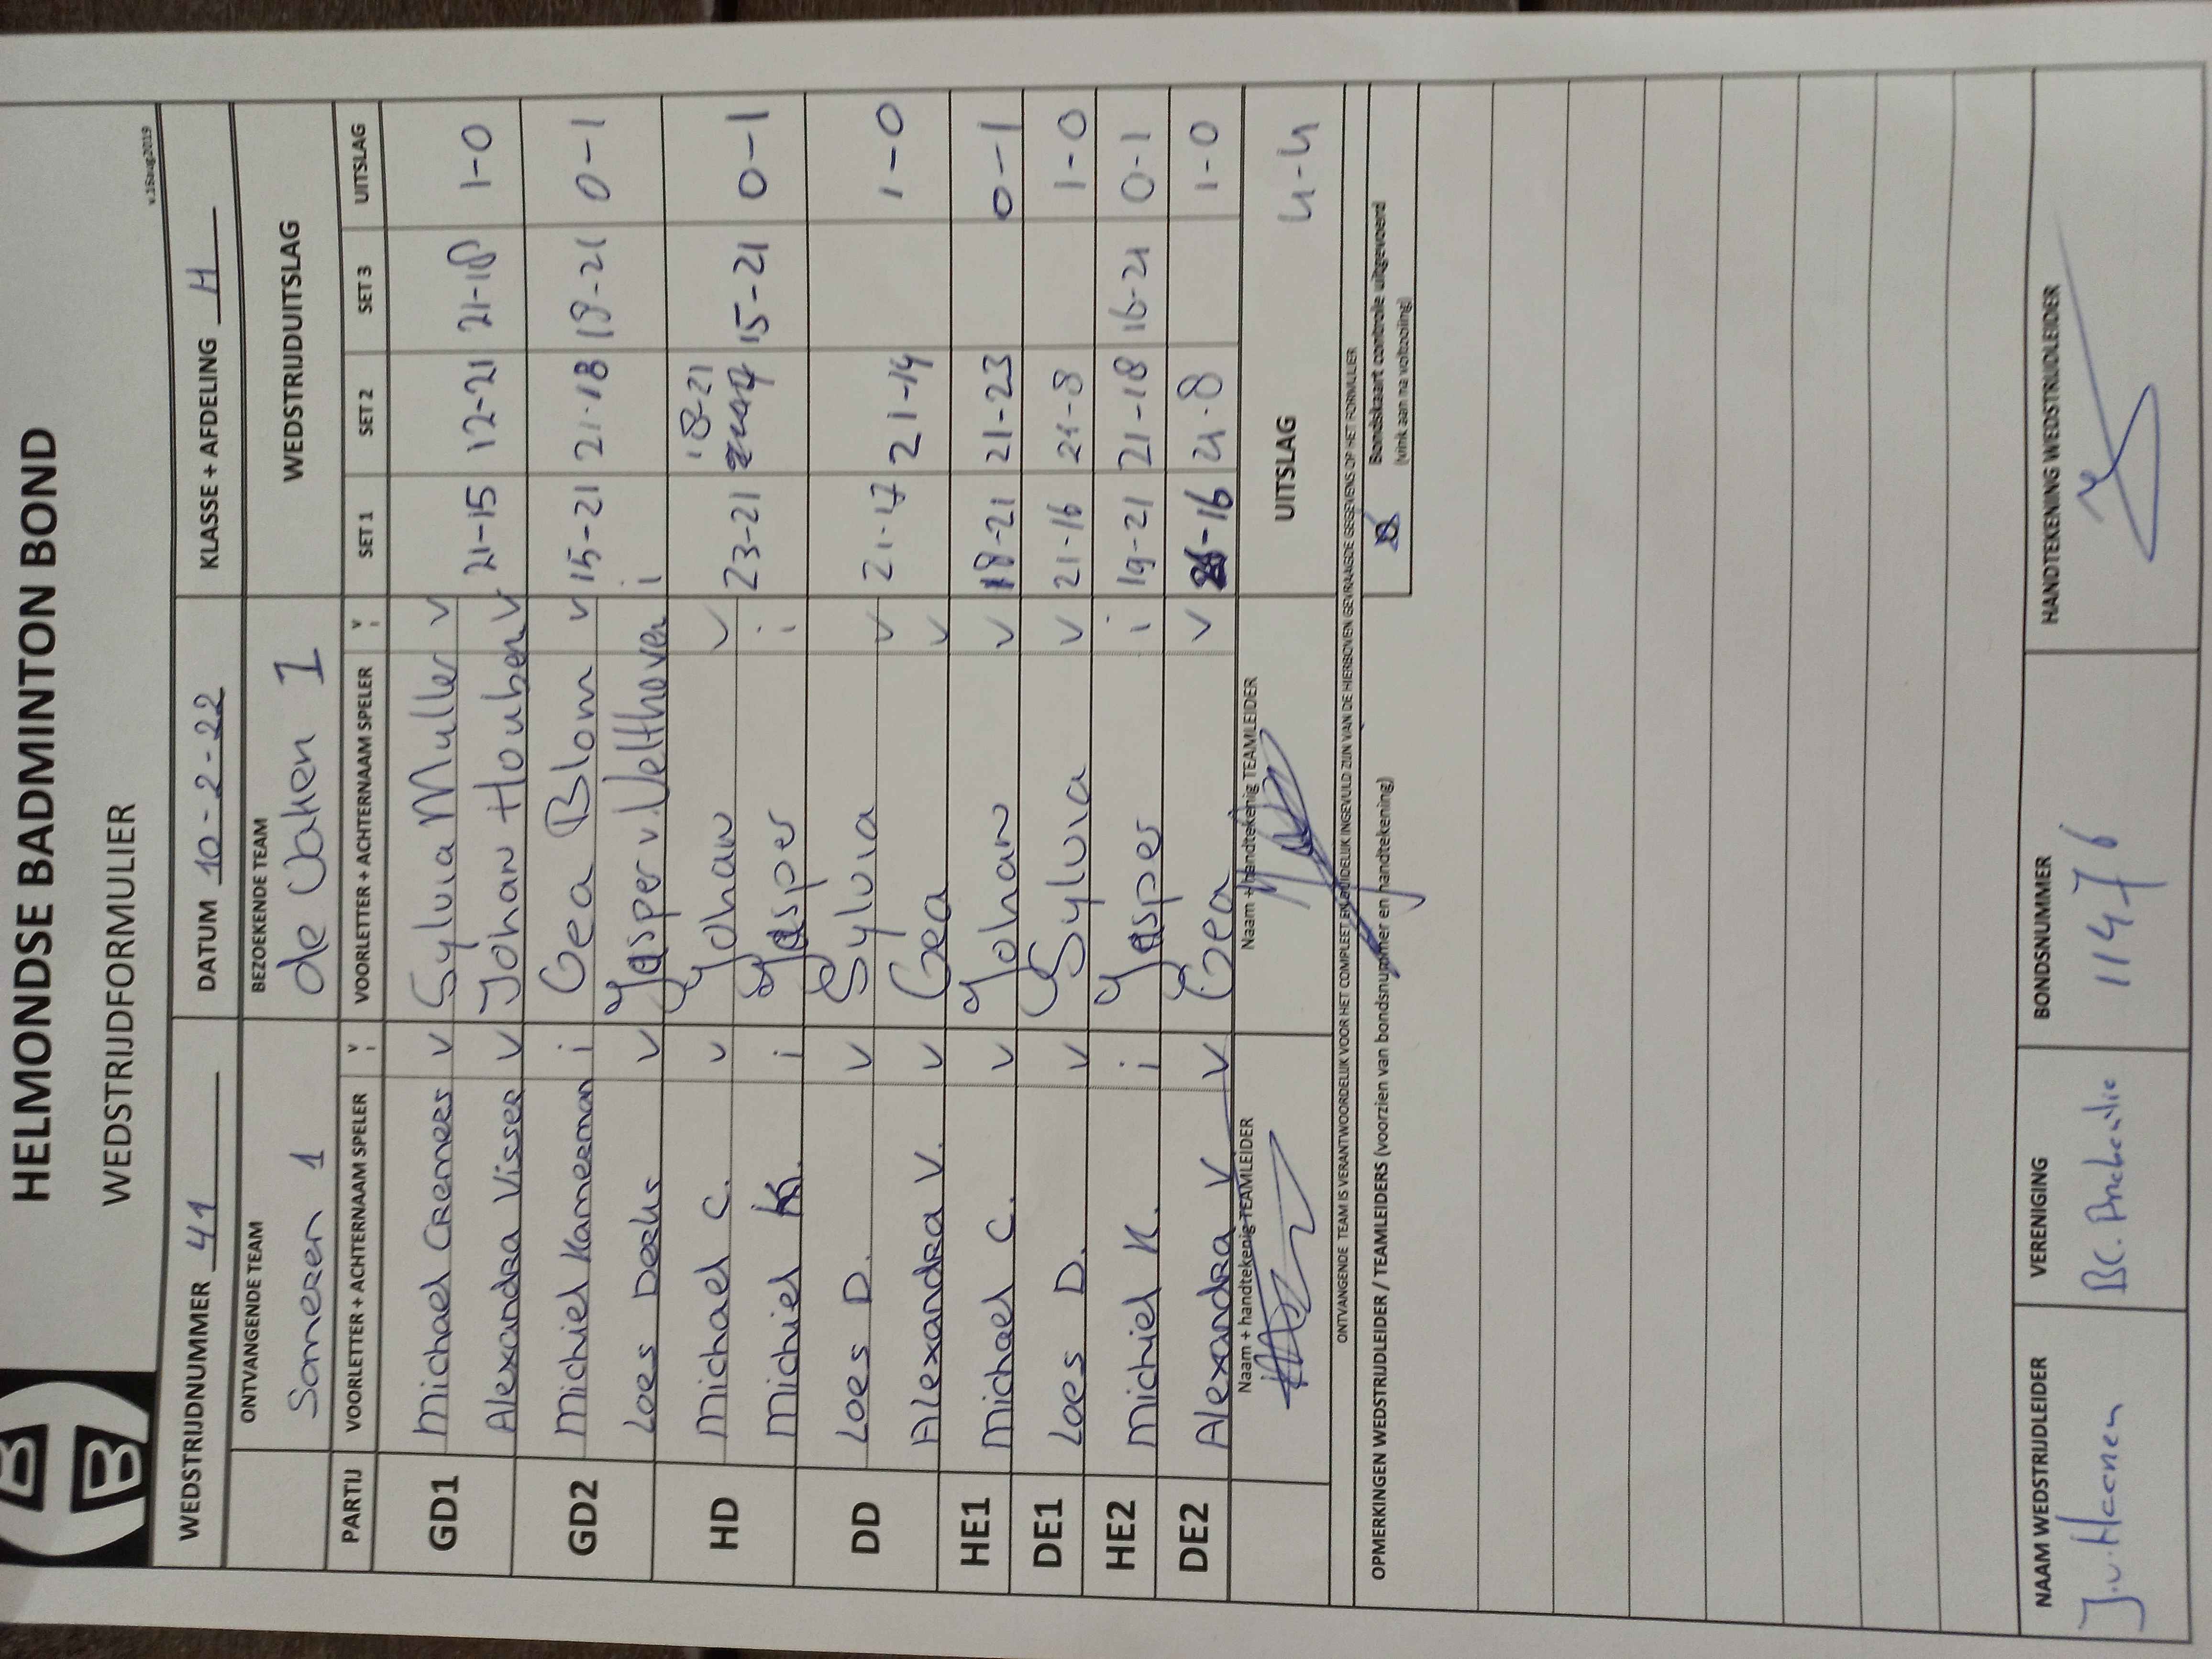 HELMONDSE BADMINTON BOND
WEDSTRIJDFORMULIER
v.16aug2019
WEDSTRIJDNUMMER 41 DATUM 10-2-22 KLASSE + AFDELING H
ONTVANGENDE TEAM BEZOEKENDE TEAM WEDSTRIJDUITSLAG
Someren 1 de Vahen 1
PARTIJ VOORLETTER + ACHTERNAAM SPELER v i VOORLETTER + ACHTERNAAM SPELER v i SET 1 SET 2 SET 3 UITSLAG
GD1 Michael Cremers v Sylvia Muller v
Alexandra Visser v Johan Houben v 21-15 12-21 21-18 1-0
GD2 Michiel Kamerman i Gea Blom v 15-21 21-18 19-21 0-1
Loes Derks v Jasper v. Velthoven i
HD Michael C. v Johan v 18-21
Michiel K. i Jasper i 23-21 15-21 0-1
DD Loes D. v Sylvia v 21-17 21-14 1-0
Alexandra V. v Gea v
HE1 Michael C. v Johan v 18-21 21-23 0-1
DE1 Loes D. v Sylvia v 21-16 21-8 1-0
HE2 Michiel K. i Jasper i 19-21 21-18 16-21 0-1
DE2 Alexandra V. v Gea v 21-16 21-8 1-0
Naam + handtekenig TEAMLEIDER Naam + handtekenig TEAMLEIDER UITSLAG 4-4
ONTVANGENDE TEAM IS VERANTWOORDELIJK VOOR HET COMPLEET EN DUIDELIJK INGEVULD ZIJN VAN DE HIERBOVEN GEVRAAGDE GEGEVENS OP HET FORMULIER
OPMERKINGEN WEDSTRIJDLEIDER / TEAMLEIDERS (voorzien van bondsnummer en handtekening)
Bondskaart controle uitgevoerd
(vink aan na voltooiing)
NAAM WEDSTRIJDLEIDER VERENIGING BONDSNUMMER HANDTEKENING WEDSTRIJDLEIDER
J.v. Haenen BC. 11476